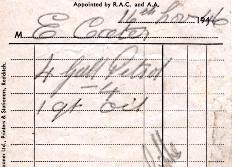 Appointed by R.A.C. and A.A.
14th Nov 1946
M E Coster
4 Gall Petrol
1 qt Oil
Printers & Stationers, Redditch.